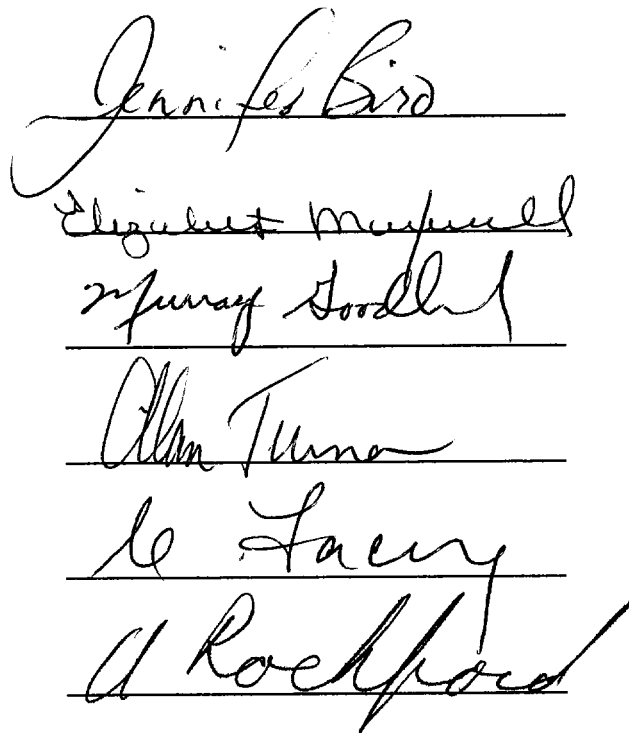 Jennifer Bird
Elizabeth Maxwell
Murray
Allan Turner
Lacey
A Rochford